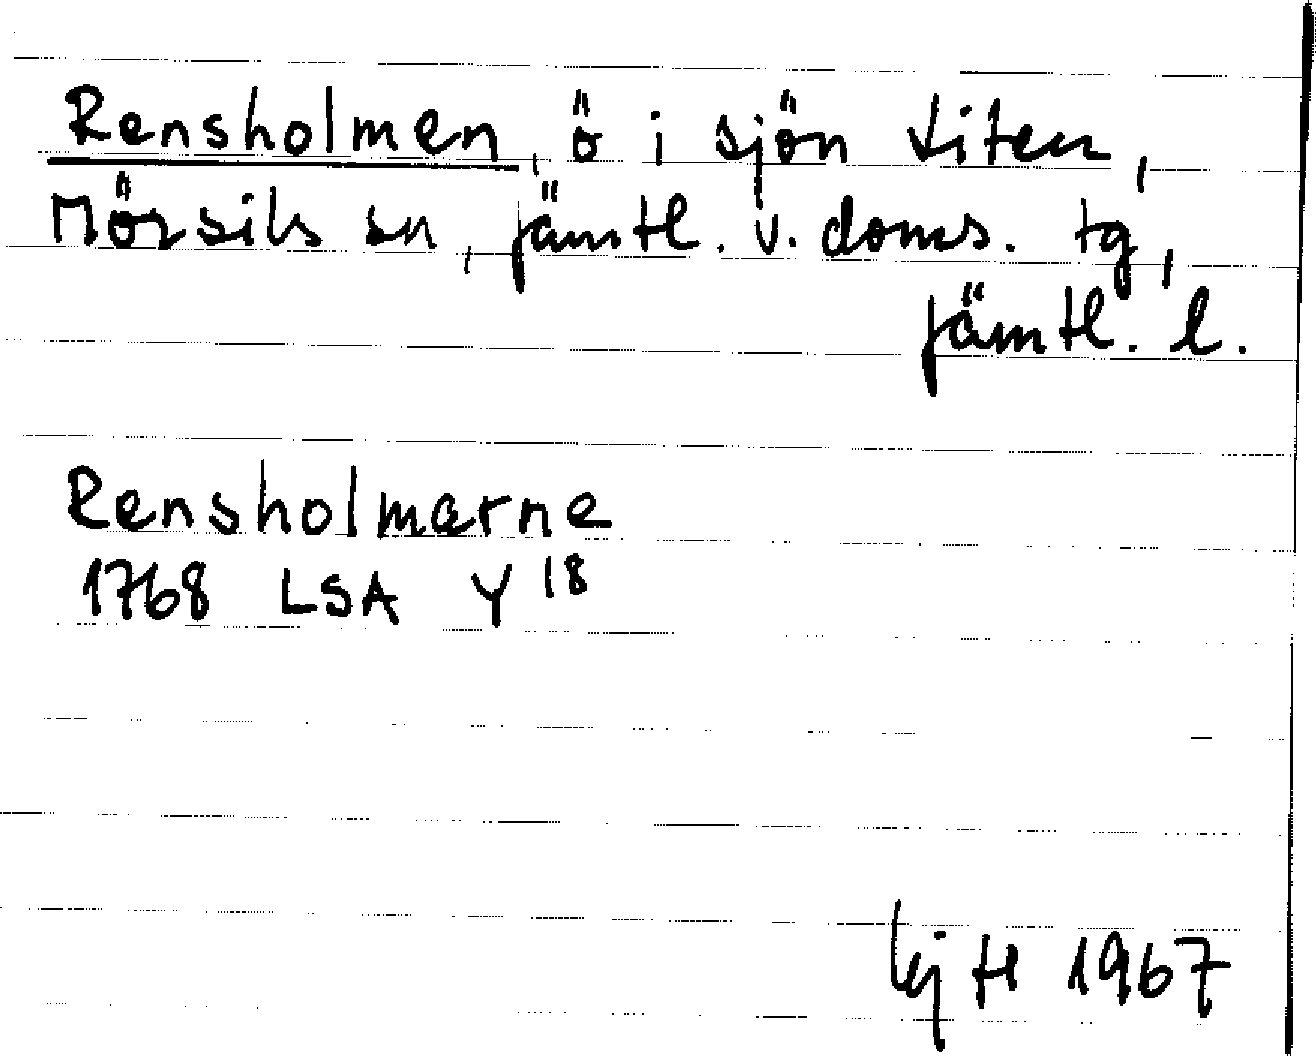 Rensholmen, ö i sjön Liten,
Mörsils sn, Jämtl. v. doms. tg,
Jämtl. l.
Rensholmarne
1768 LSA Y 18
1967